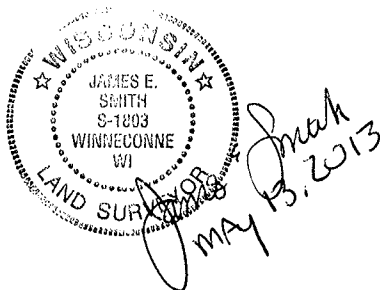 WISCONSIN
JAMES E.
SMITH
S-1803
WINNECONNE
WI
LAND SURVEYOR
James E Smith
MAY 13, 2013